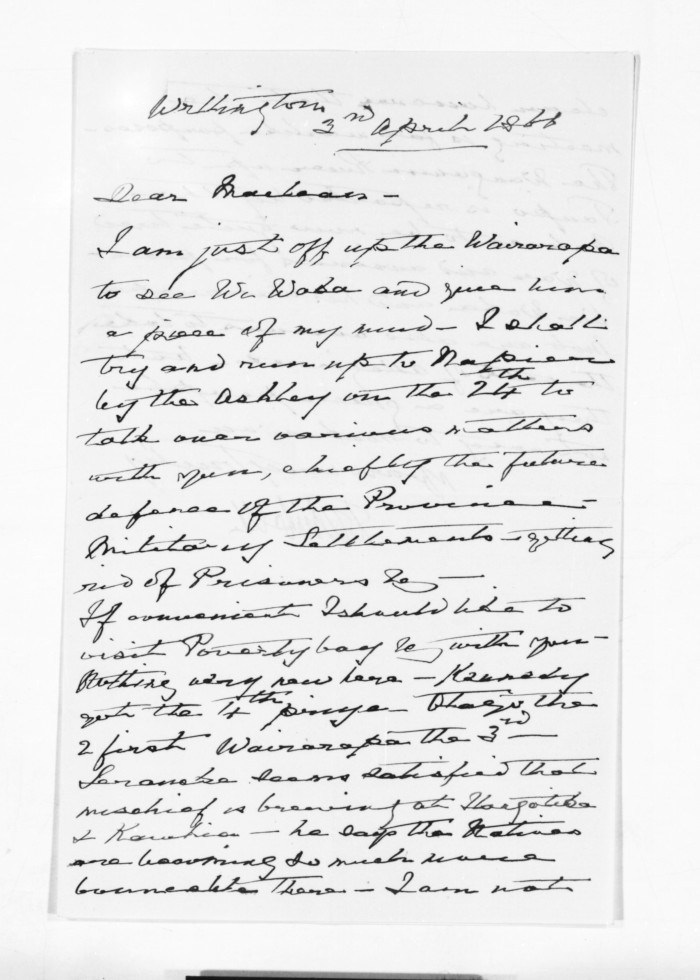 Wellington
3rd April 1866
Dear Maclean -
I am just off up the Wairarapa
to see Wi Waka and give him
a piece of my mind - I shall
try and run up to Napier
by the Ashley on the 24th to
talk over various matters
with you, chiefly the future
defence of the Province -
Military Settlements - getting
rid of Prisoners &c -
If convenient I should like to
visit Poverty bay &c with you -
Nothing very new here - Kennedy
gets the 4th prize Otago the
2 first Wairarapa the 3rd -
seems satisfied that
mischief is brewing at
& Kawhia - he says the Natives
are becoming so much more
there - I am not